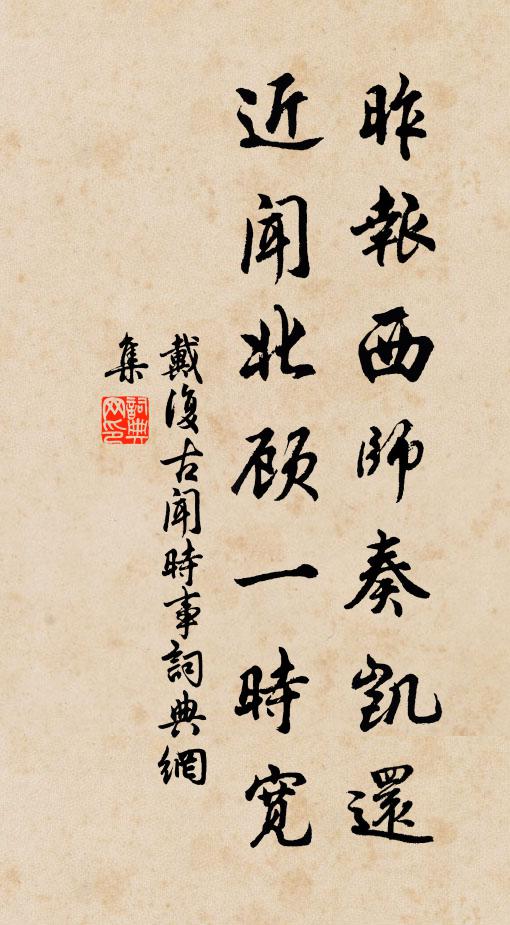 昨報西師奏凱還
近聞北顧一時寬
戴復古聞時事詞典網
集
詞典网印